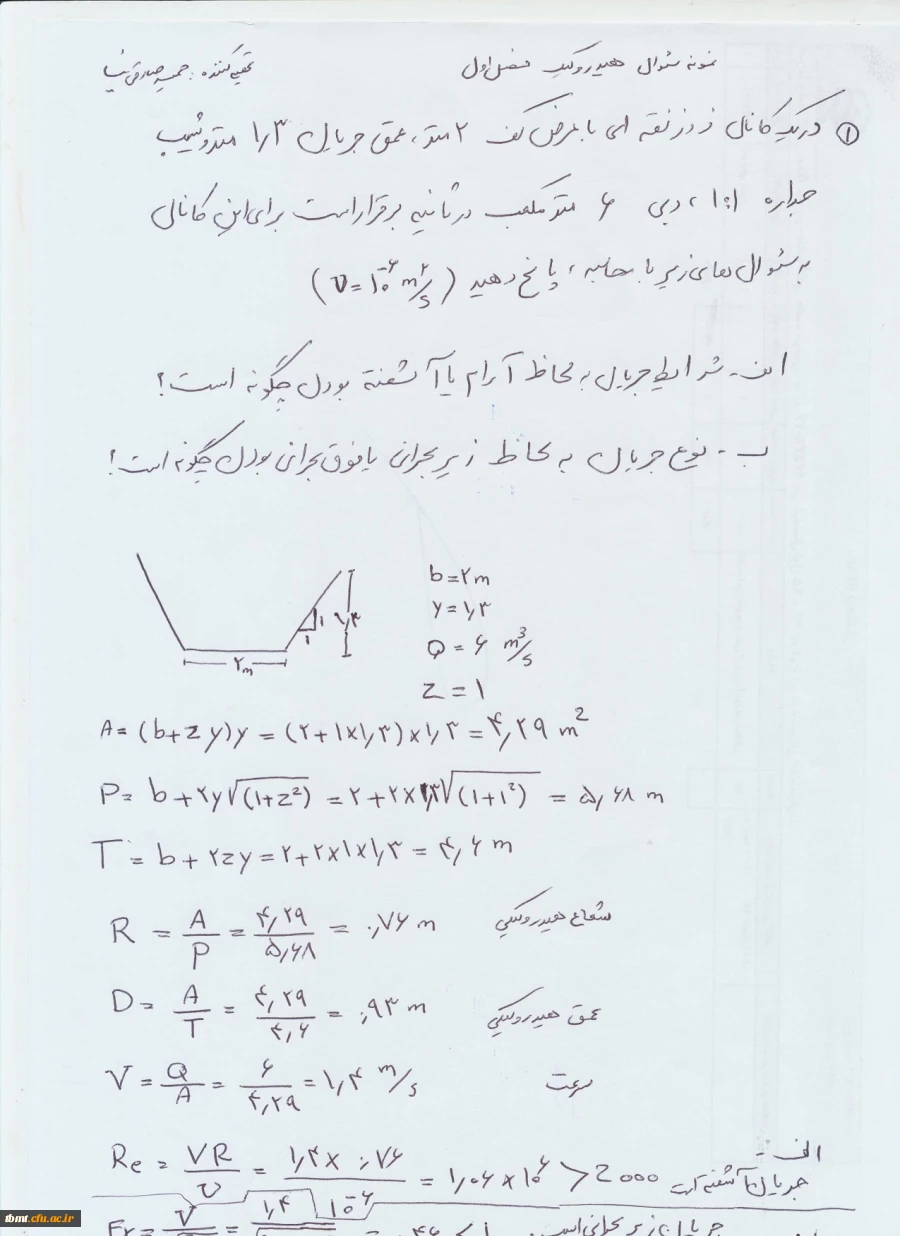 نمونه سئوال هیدرولیک فصل اول
تهیه کننده : حمید صادقی نیا
① در یک کانال ذوزنقه ای با عرض کف ۲ متر، عمق جریان ۱٫۳ متر و شیب
جداره ۱:۱ ، دبی ۶ متر مکعب در ثانیه برقرار است برای این کانال
به سئوال های زیر با محاسبه ، پاخ دهید (ν = ۱۰⁻⁶ m²/s)
الف - شرایط جریان به لحاظ آرام یا آشفته بودن چگونه است؟
ب - نوع جریان به لحاظ زیر بحرانی یا فوق بحرانی بودن چگونه است؟
b = ۲m
y = ۱٫۳
Q = ۶ m³/s
Z = ۱
۱
۱
۱٫۳
۲m
A = (b + zy)y = (۲+۱×۱٫۳)×۱٫۳ = ۴٫۲۹ m²
P = b + ۲y√(1+z²) = ۲+۲×۱٫۳√(۱+۱²) = ۵٫۶۸ m
T = b + ۲zy = ۲+۲×۱×۱٫۳ = ۴٫۶ m
R = A/P = ۴٫۲۹/۵٫۶۸ = ۰٫۷۶ m شعاع هیدرولیکی
D = A/T = ۴٫۲۹/۴٫۶ = ۰٫۹۳ m عمق هیدرولیکی
V = Q/A = ۶/۴٫۲۹ = ۱٫۴ m/s سرعت
الف -
Re = VR/υ = ۱٫۴×۰٫۷۶/۱۰⁻⁶ = ۱٫۰۶×۱۰⁶ > 2000 جریان آشفته است
Fr = V = ۱٫۴ جریان زیر بحرانی است.
tbmt.cfu.ac.ir